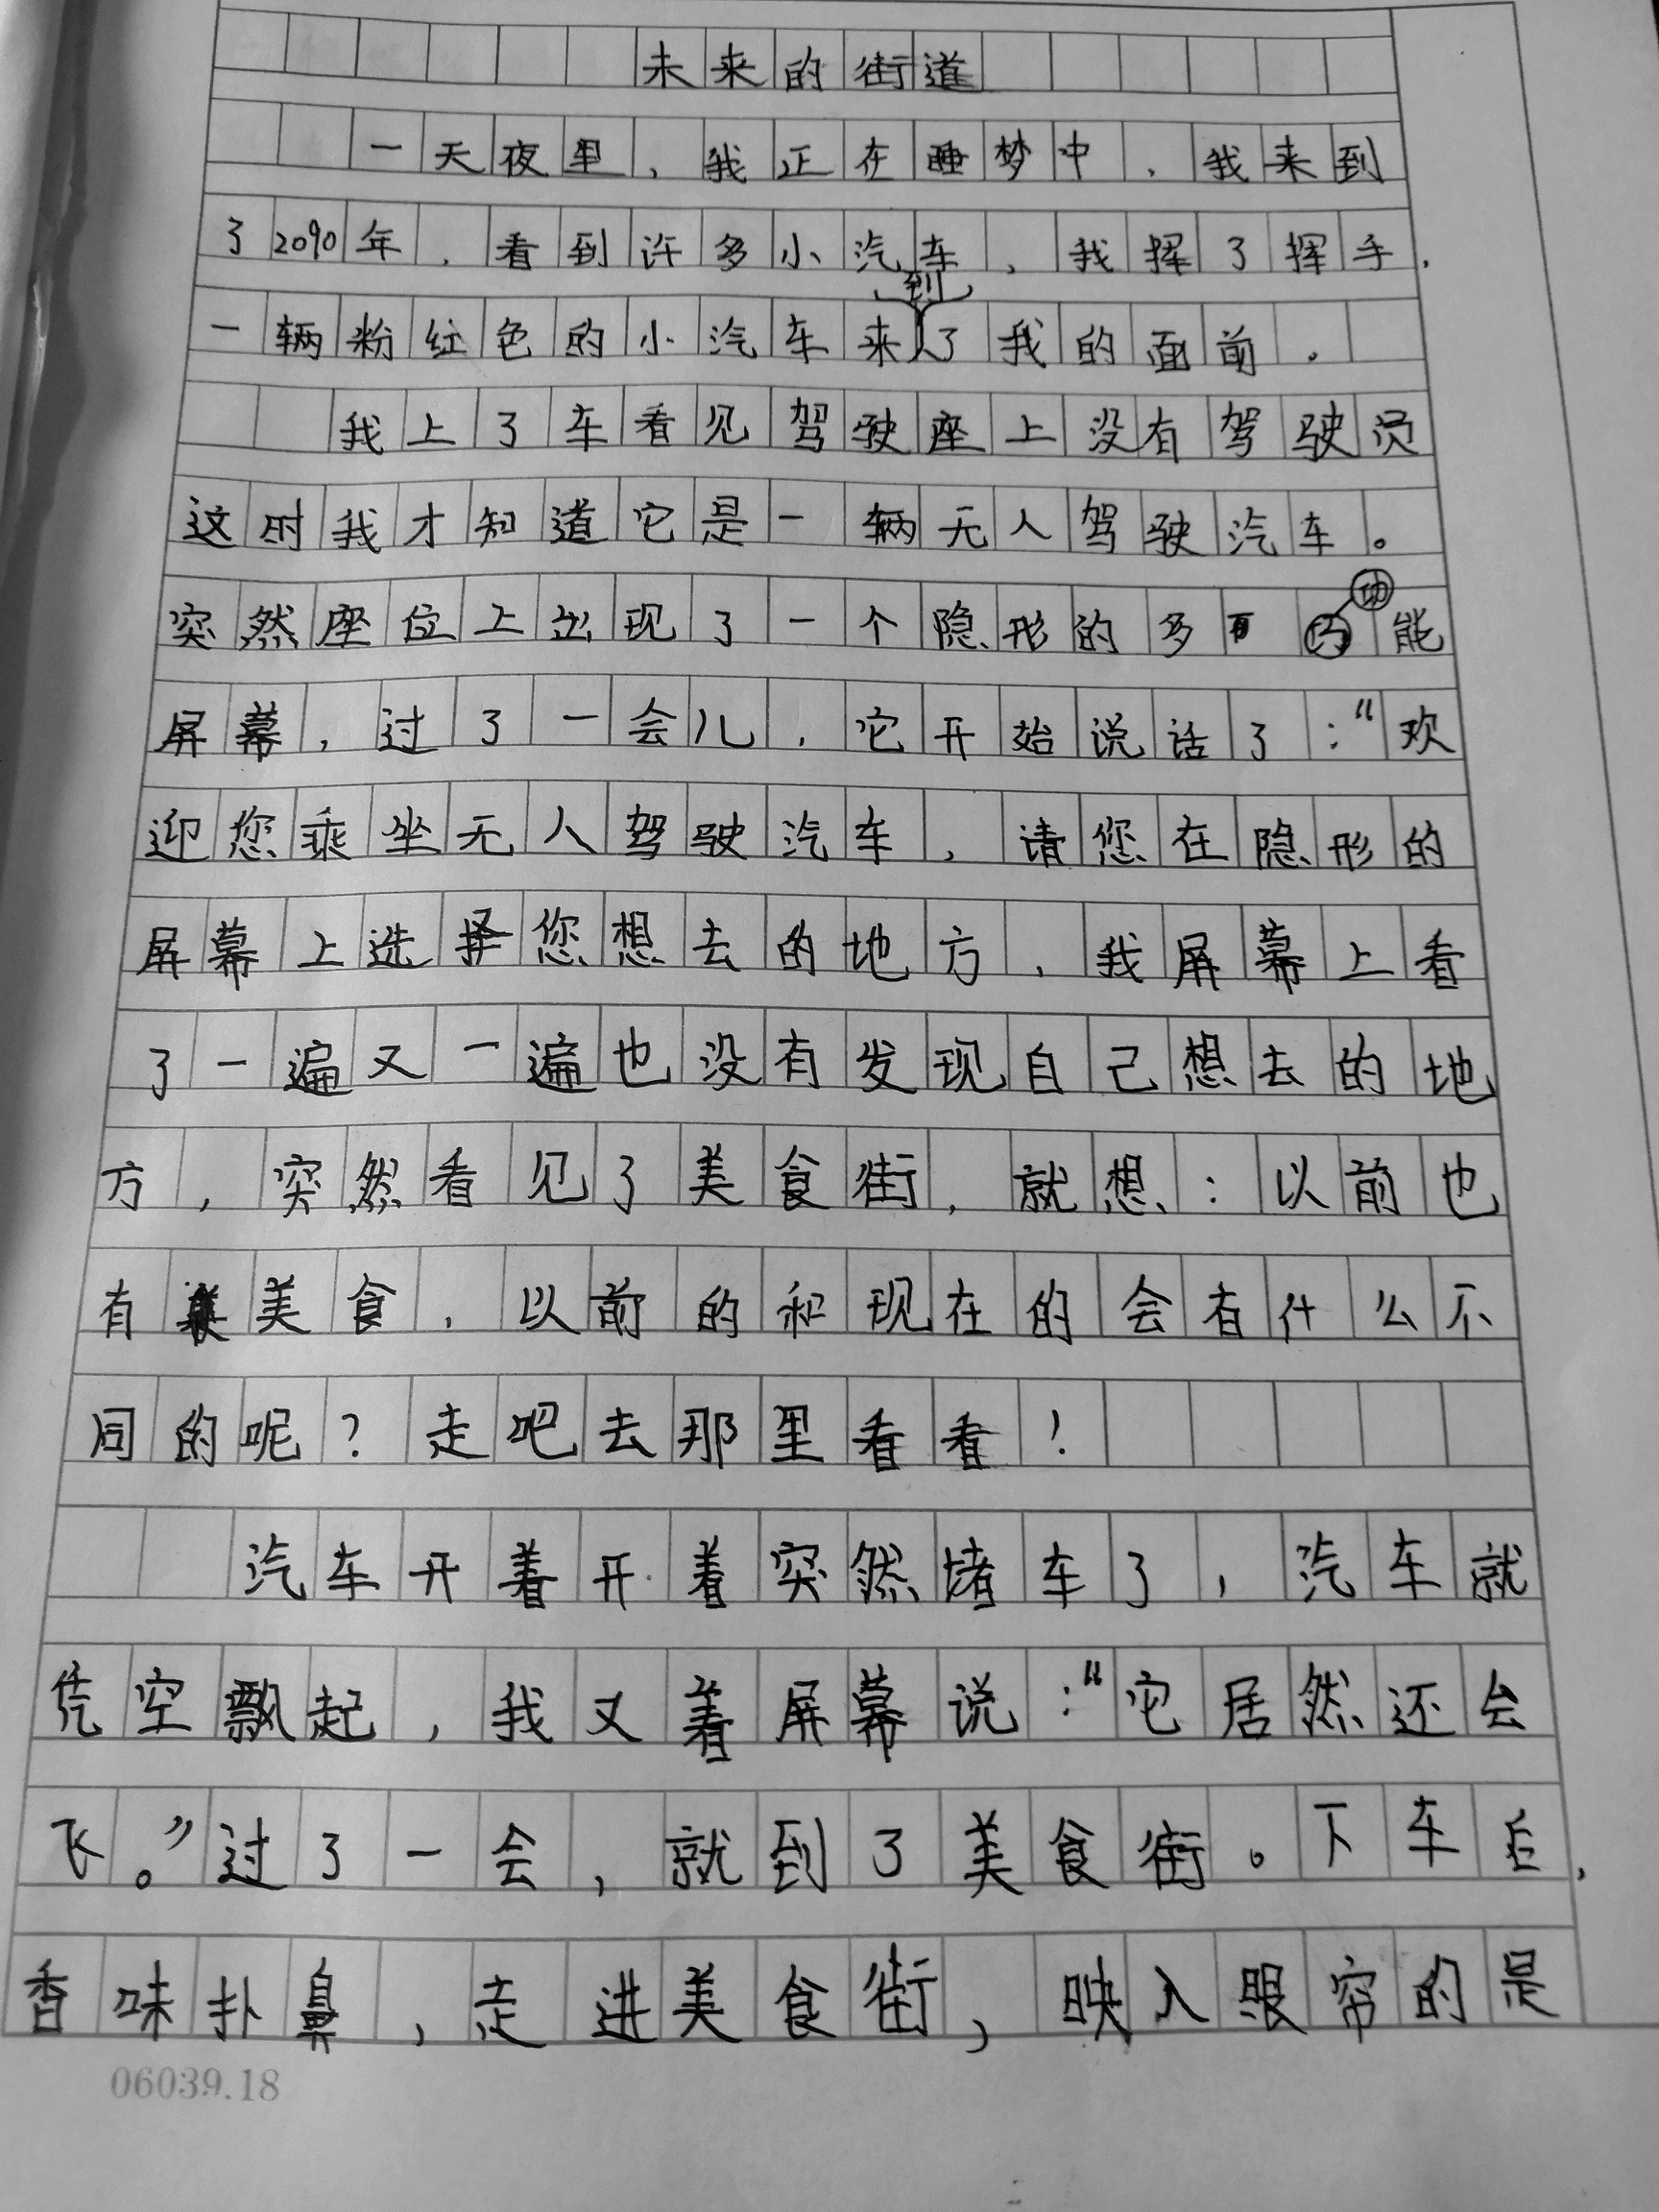 未来的街道
一天夜里，我正在睡梦中，我来到
了2090年，看到许多小汽车，我挥了挥手，
一辆粉红色的小汽车来到了我的面前。
我上了车看见驾驶座上没有驾驶员
这时我才知道它是一辆无人驾驶汽车。
突然座位上出现了一个隐形的多功能
屏幕，过了一会儿，它开始说话了：“欢
迎您乘坐无人驾驶汽车，请您在隐形的
屏幕上选择您想去的地方，我屏幕上看
了一遍又一遍也没有发现自己想去的地
方，突然看见了美食街，就想：以前也
有美食，以前的和现在的会有什么不
同的呢？走吧去那里看看！
汽车开着开着突然堵车了，汽车就
凭空飘起，我又着屏幕说：“它居然还会
飞。”过了一会，就到了美食街。下车后，
香味扑鼻，走进美食街，映入眼帘的是
06039.18